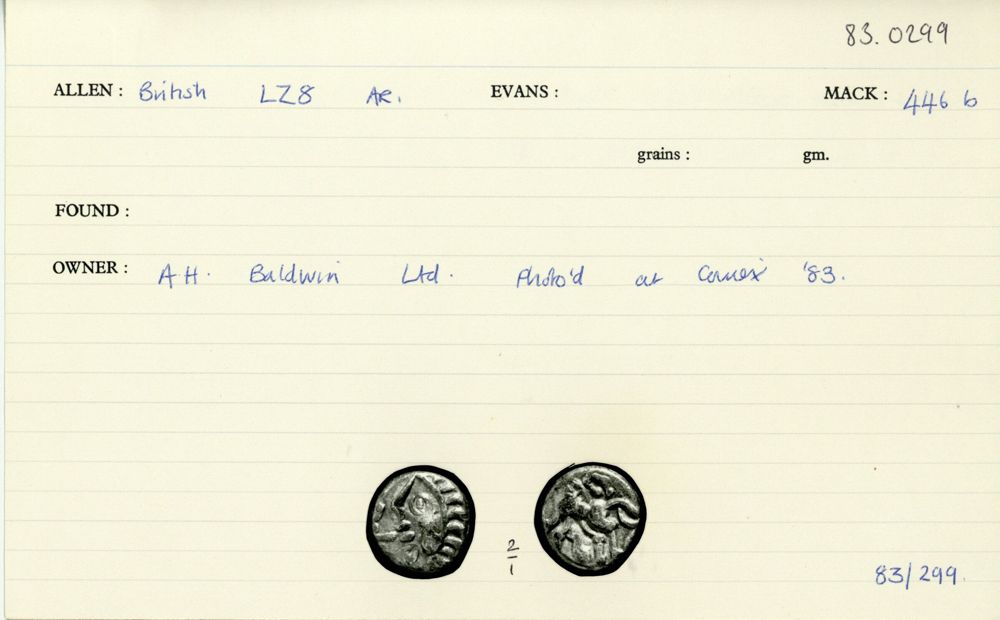 83.0299
ALLEN : British LZ8 AR. EVANS : MACK : 446 b
grains : gm.
FOUND :
OWNER : A.H. Baldwin Ltd. Photo'd at Coinex '83.
2/1
83/299.